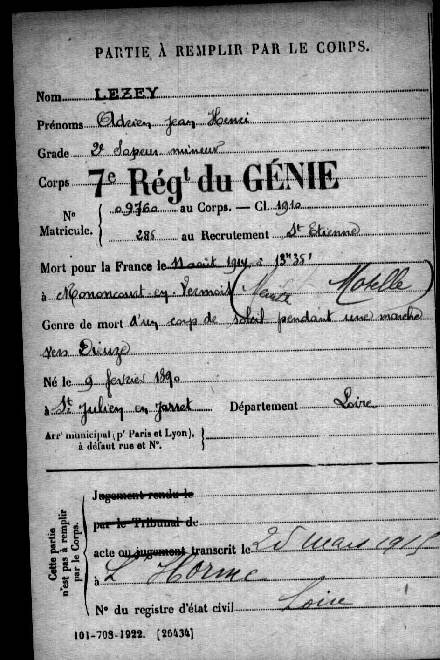 PARTIE À REMPLIR PAR LE CORPS.
Nom LEZEY
Prénoms Adrien Jean Henri
Grade 2e Sapeur mineur
Corps 7e Régt du GÉNIE
No Matricule. { 09760 au Corps. — Cl. 1910
285 au Recrutement St Etienne
Mort pour la France le 11 août 1914 à 13h35'
à Mononcourt en Vermois ( Moselle )
Genre de mort d'un corp de soleil pendant une marche
vers Dieuze
Né le 9 février 1890
à St Julien en Jarret Département Loire
Arrt municipal (pr Paris et Lyon), }
à défaut rue et No.
Cette partie
n'est pas à remplir
par le Corps.
Jugement rendu le
par le Tribunal de
acte ou jugement transcrit le 25 mars 1915
à L'Horme
No du registre d'état civil Loire
101-708-1922. [26434]